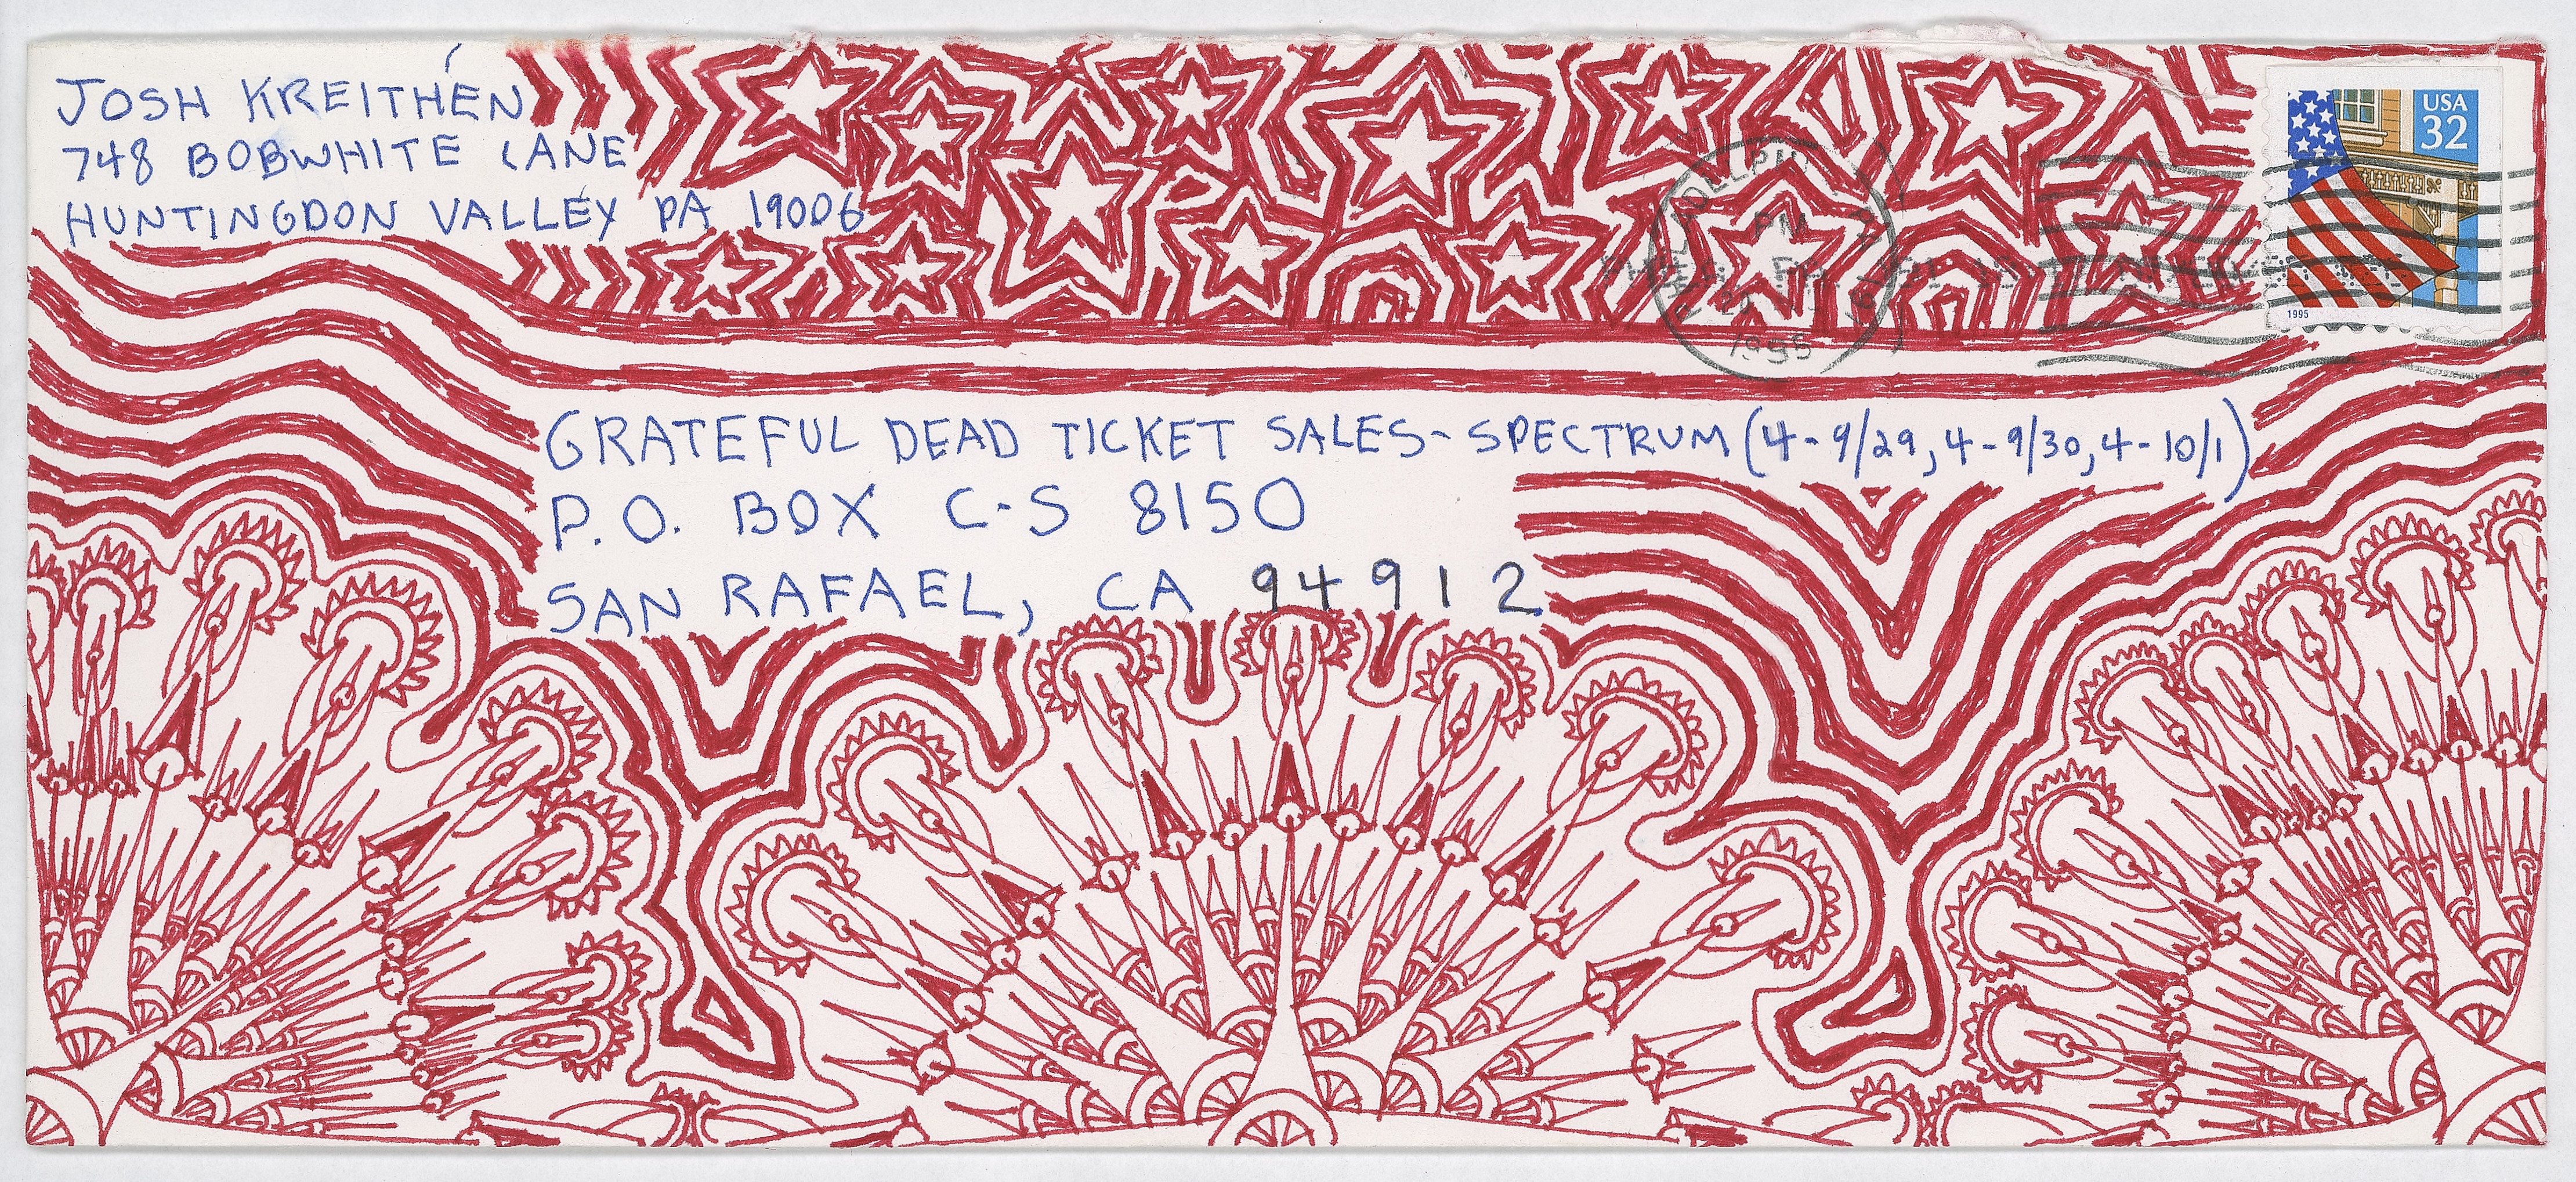 JOSH KREITHEN
748 BOBWHITE LANE
HUNTINGDON VALLEY PA 19006
USA
32
1995
PM
1995
GRATEFUL DEAD TICKET SALES - SPECTRUM (4-9/29, 4-9/30, 4-10/1)
P.O. BOX C-S 8150
SAN RAFAEL, CA 94912